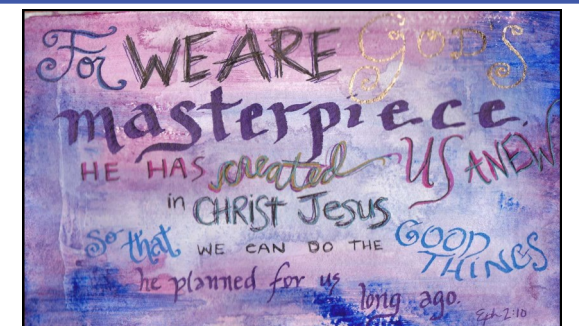 For WE ARE GODS
masterpiece.
HE HAS created US ANEW
in CHRIST JESUS
So that WE CAN DO THE GOOD
THINGS
he planned for us
long ago.
Eph 2:10